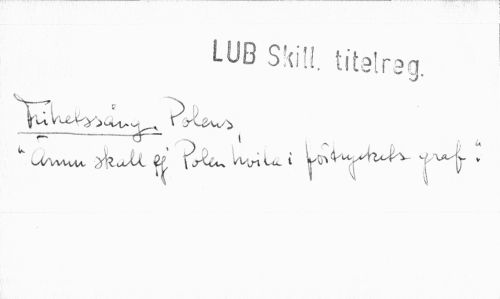 LUB Skill. titelreg.
Frihetssång, Polens,
"Ännu skall ej Polen hvila i förtryckets graf".